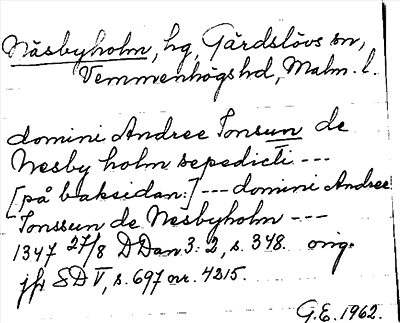 Näsbyholm, hg, Gärdslövs sn,
Vemmenhögshd, Malm. l.
domini Andree Jonsun de
Nesby holm sepedicti ---
[på baksidan:] --- domini Andree
Jonssun de Nesbyholm ---
1347 27/8 DDan 3: 2, s. 348. orig.
jfr SD V, s. 697 nr. 4215.
G.E. 1962.